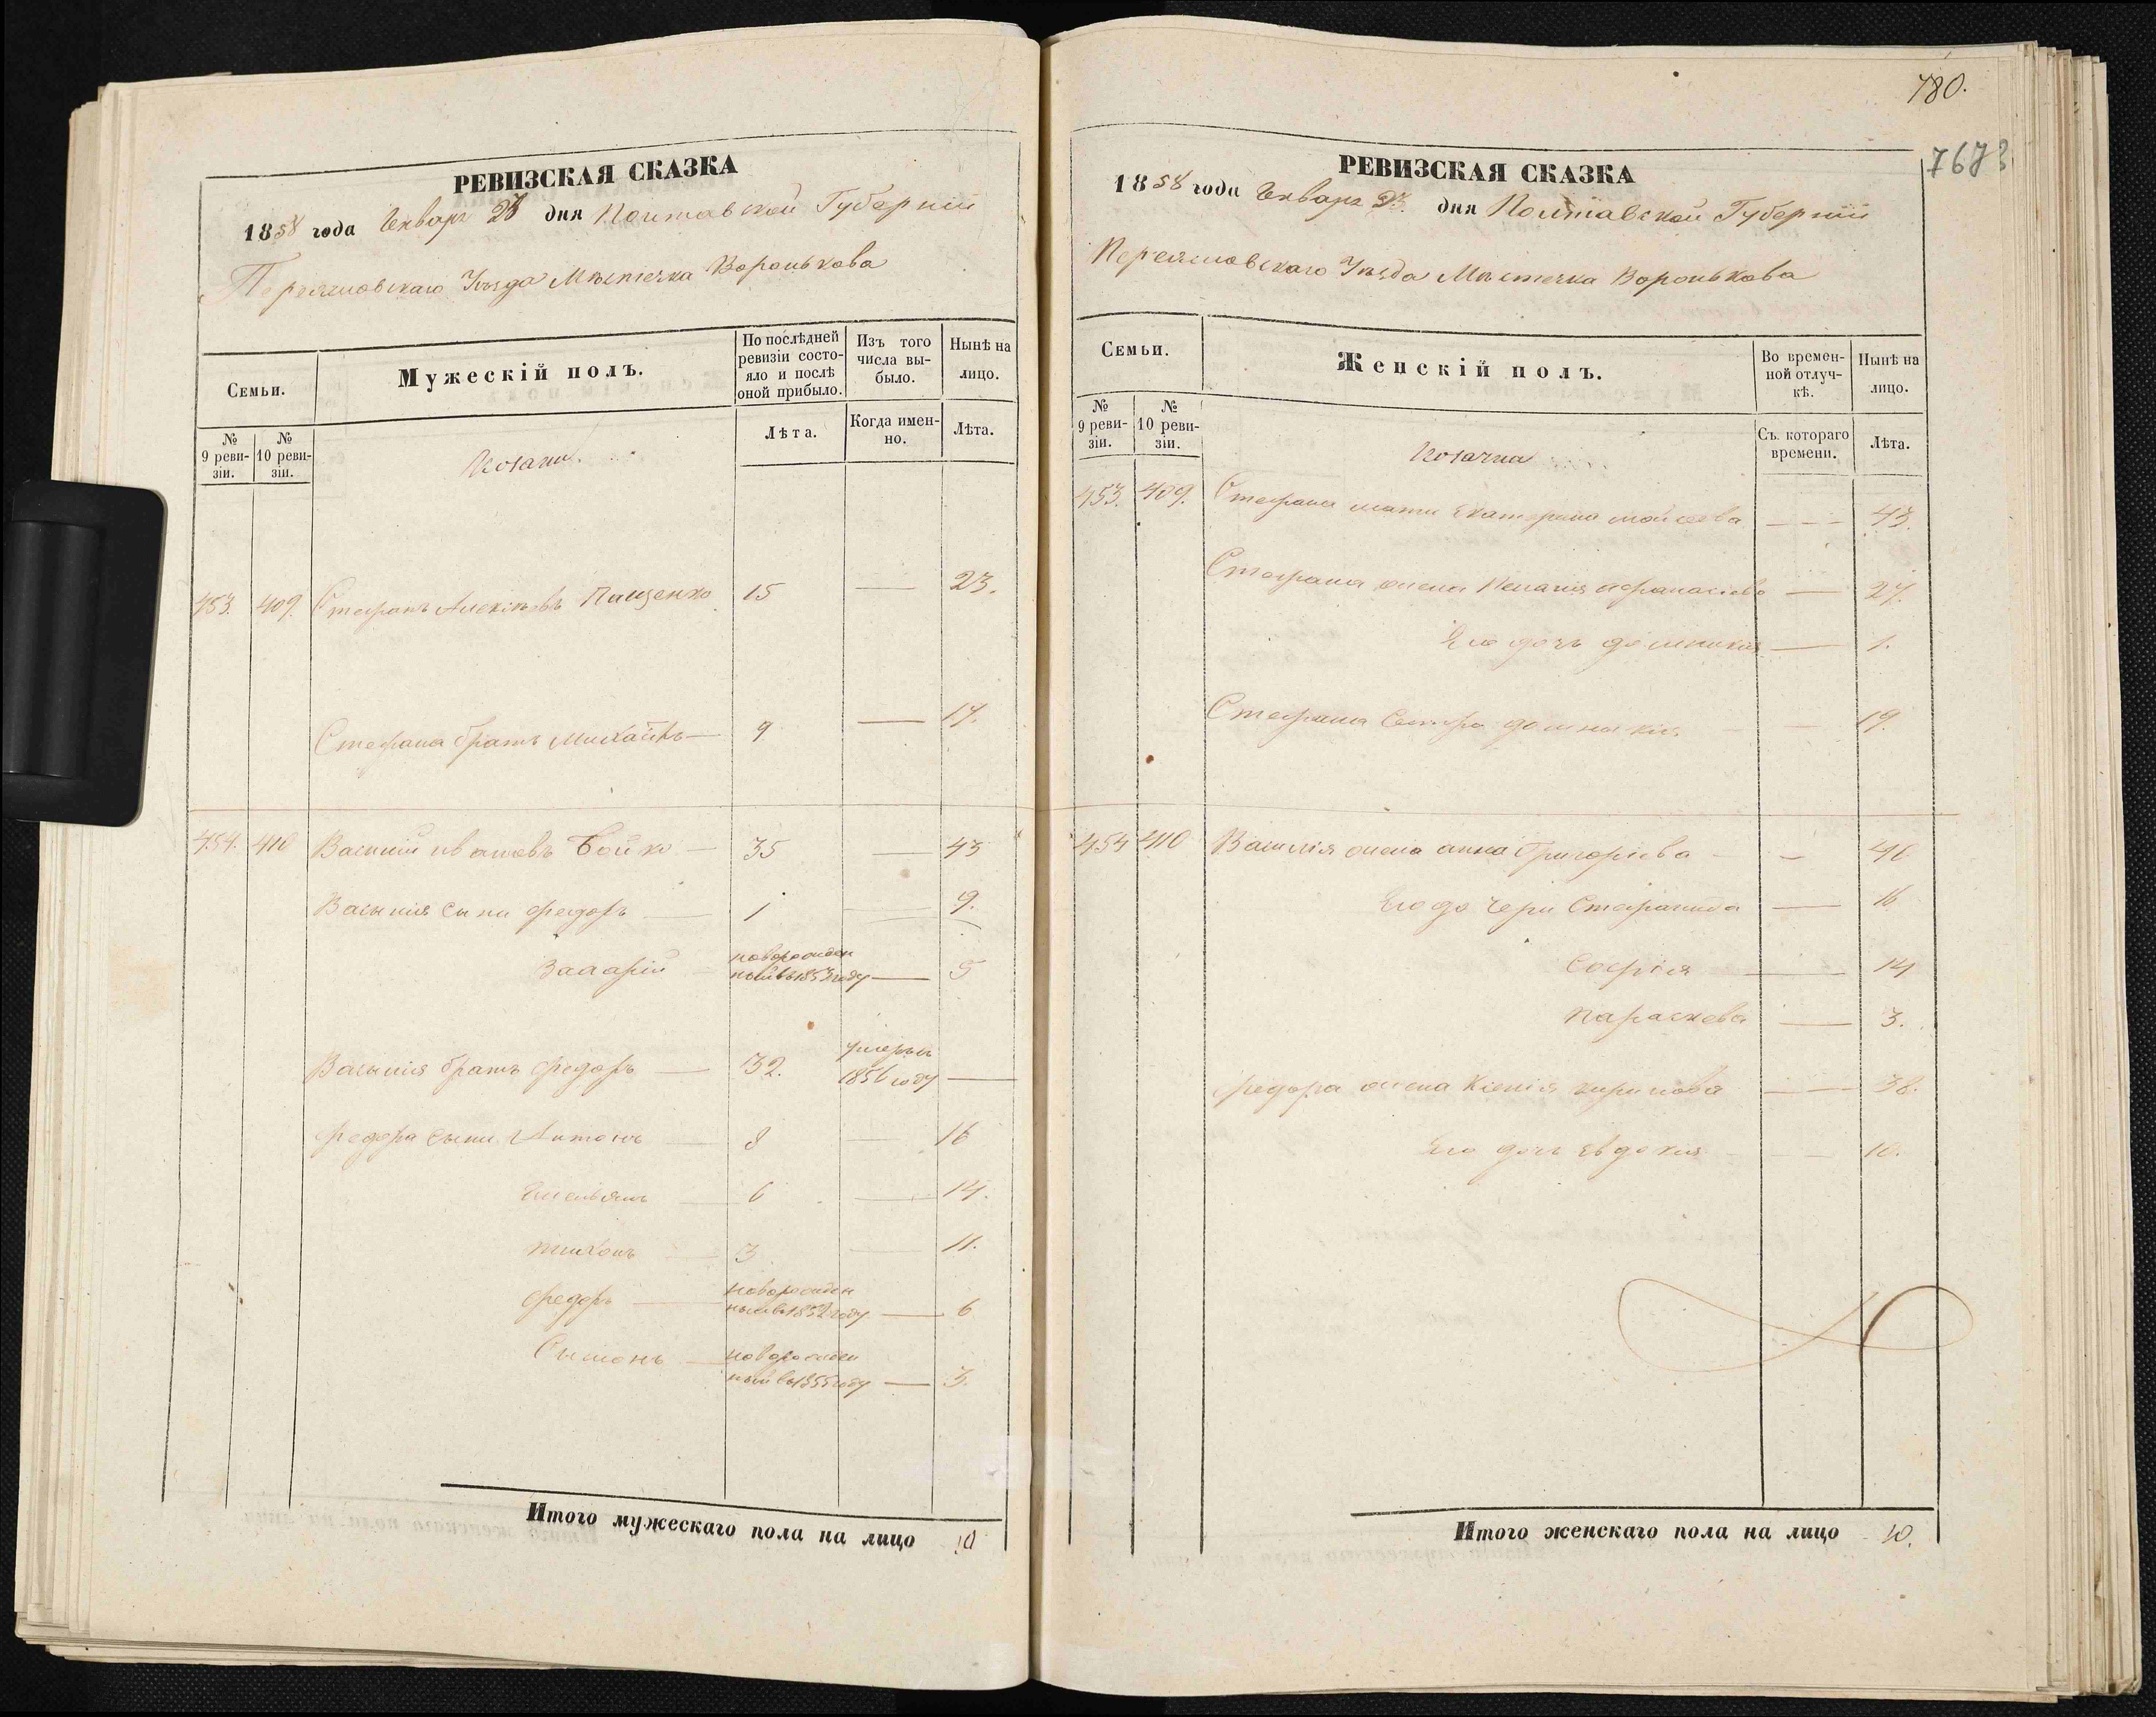 780.
767
РЕВИЗСКАЯ СКАЗКА
1858 года Генваря дня Полтавской Губерніи
Переяславскаго Уѣзда Мѣстечка Воронькова
Семьи.
Мужескій полъ.
По послѣдней ревизіи состояло и послѣ оной прибыло.
Изъ того числа выбыло.
Нынѣ на лицо.
№ 9 ревизіи.
№ 10 ревизіи.
Козаки.
Лѣта.
Когда именно.
Лѣта.
453. 409. Стефанъ Алексѣевъ Пащенко 15 — 23.
Стефана братъ Михайлъ — 9 — 17.
454. 410 Василій ивановъ Бойко — 35 — 43
Василія сыни федоръ — 1 — 9.
Захарій новорожден
ный въ 1853 году — 5
Василія братъ федоръ — 32. умеръ въ
1856 году —
федора сыни Антонъ — 8 — 16
Емельянъ — 6 — 14.
тихонъ — 3 — 11.
федоръ — новорожден
ный въ 1852 году — 6
Сымонъ — новорожден
ный въ 1855 году — 3.
Итого мужескаго пола на лицо 10
РЕВИЗСКАЯ СКАЗКА
1858 года Генваря дня Полтавской Губерніи
Переяславскаго Уѣзда Мѣстечка Воронькова
Семьи.
Женскій полъ.
Во временной отлучкѣ.
Нынѣ на лицо.
№ 9 ревизіи.
№ 10 ревизіи.
Козачки
Съ котораго времени.
Лѣта.
453. 409. Стефана мати Екатерина мойсеева — 43.
Стефана жена Пелагія афанасіева — 27.
Его дочь домникія — 1.
Стефана Сестра домникія — 19.
454 410 Василія жена анна Григоріева — 41
Его дочери Стефанида — 16
Софія — 14
параскева — 3.
федора жена Ксенія кирилова — 38.
Его дочь Евдокия — 10.
Итого женскаго пола на лицо 10.